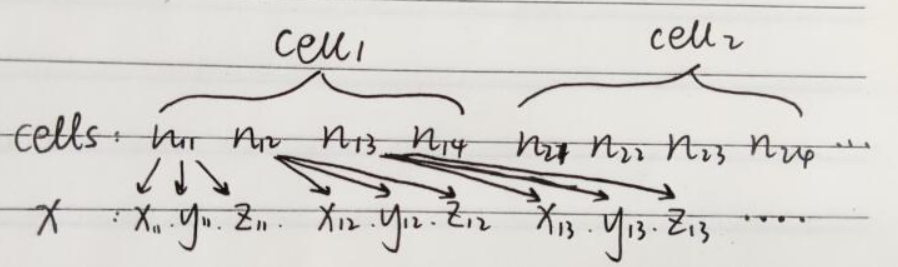 cell₁ cell₂
cells: n₁₁ n₁₂ n₁₃ n₁₄ n₂₁ n₂₂ n₂₃ n₂₄ ...
X : x₁₁. y₁₁. z₁₁. x₁₂. y₁₂. z₁₂ x₁₃. y₁₃. z₁₃ ....